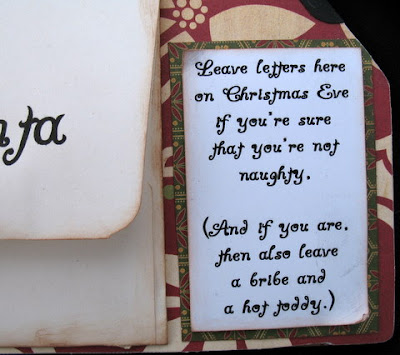 nta
Leave letters here
on Christmas Eve
if you're sure
that you're not
naughty.
(And if you are,
then also leave
a bribe and
a hot toddy.)